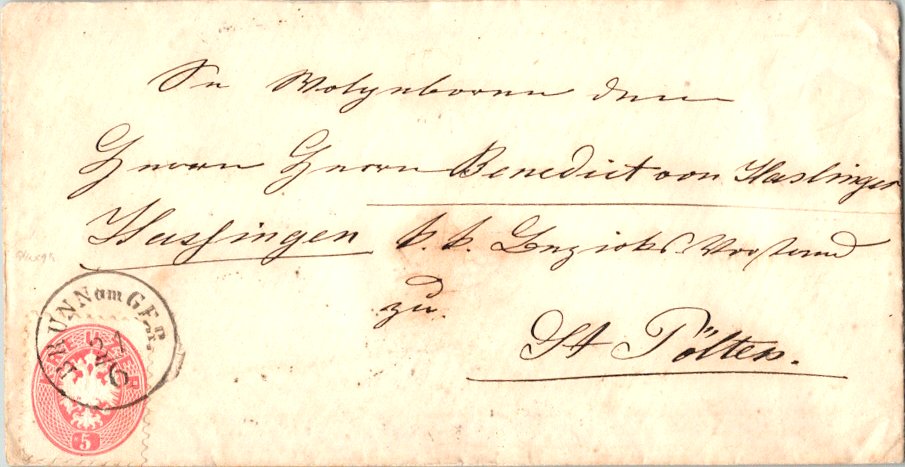 Sr Wolgeboren dem
Herrn Herrn Benedict von Haslinger
Hassingen k. k. Bezirks-Vorstand
zu.
St Pölten.
BRUNN am GEB.
27
6
5